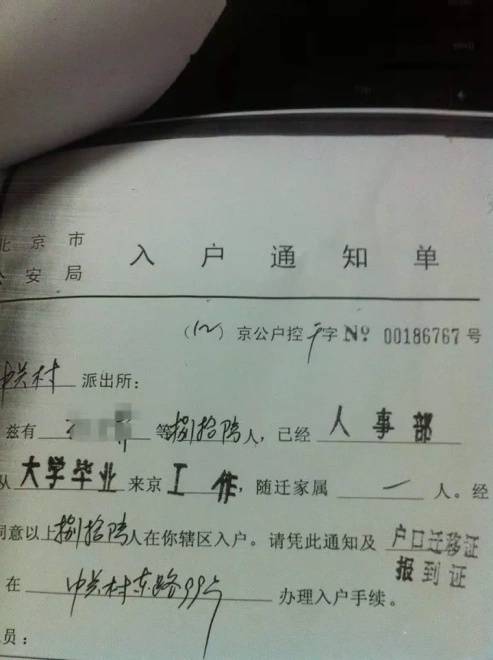 北京市
公安局
入户通知单
(12) 京公户控 字 Nº 00186767 号
中关村 派出所:
兹有 等捌拾陆人,已经 人事部
从 大学毕业 来京 工作,随迁家属 一 人。经
同意以上捌拾陆人在你辖区入户。请凭此通知及 户口迁移证
报到证
在 中关村东路99号 办理入户手续。
员: